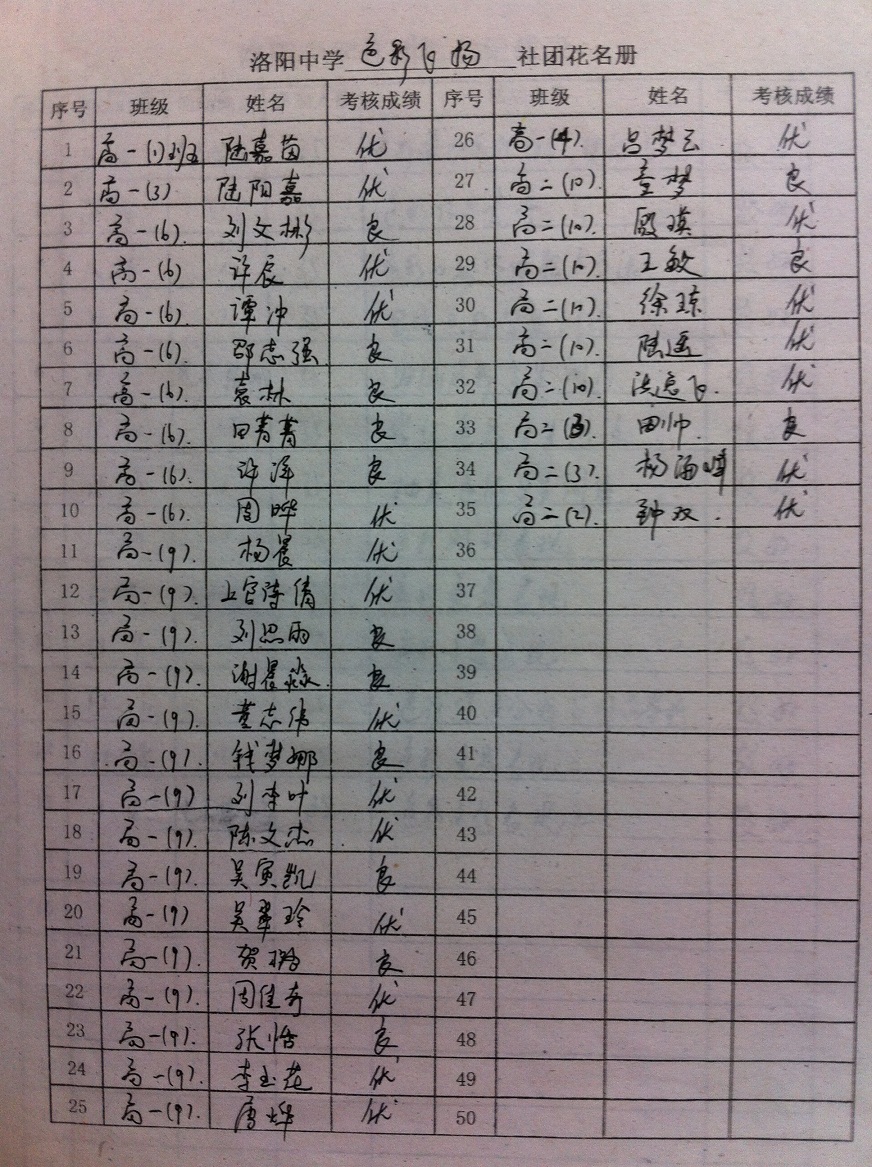 洛阳中学 色彩飞扬 社团花名册
序号 班级 姓名 考核成绩 序号 班级 姓名 考核成绩
1 高一(1)班 陆嘉苗 优 26 高一(4). 吕梦云 优
2 高一(3) 陆阳嘉 优 27 高二(10). 童梦 良
3 高一(6). 刘文彬 良 28 高二(10). 殷瑛 优
4 高一(6) 许辰 优 29 高二(10). 王敏 良
5 高一(6). 谭冲 优 30 高二(10). 徐琼 优
6 高一(6). 邵志强 良 31 高二(10). 陆遥 优
7 高一(6). 袁林 良 32 高二(10). 飞. 优
8 高一(6). 田菁菁 良 33 高二(3). 田帅. 良
9 高一(6). 许泽 良 34 高二(3). 杨海峰 优
10 高一(6). 周晔 优 35 高二(2). 钟双. 优
11 高一(9). 杨晨 优 36
12 高一(9). 上官诗倩 优 37
13 高一(9). 刘思雨 良 38
14 高一(9). 谢晨淼. 良 39
15 高一(9). 董志伟 优 40
16 高一(9). 钱梦娜 良 41
17 高一(9) 刘李叶 优 42
18 高一(9). 陈文杰 优 43
19 高一(9). 吴寅凯 良 44
20 高一(9) 吴翠玲 优 45
21 高一(9). 贺璐 良 46
22 高一(9). 周佳奇 优 47
23 高一(9). 张恬 良 48
24 高一(9). 李玉花 优 49
25 高一(9). 唐烨 优 50